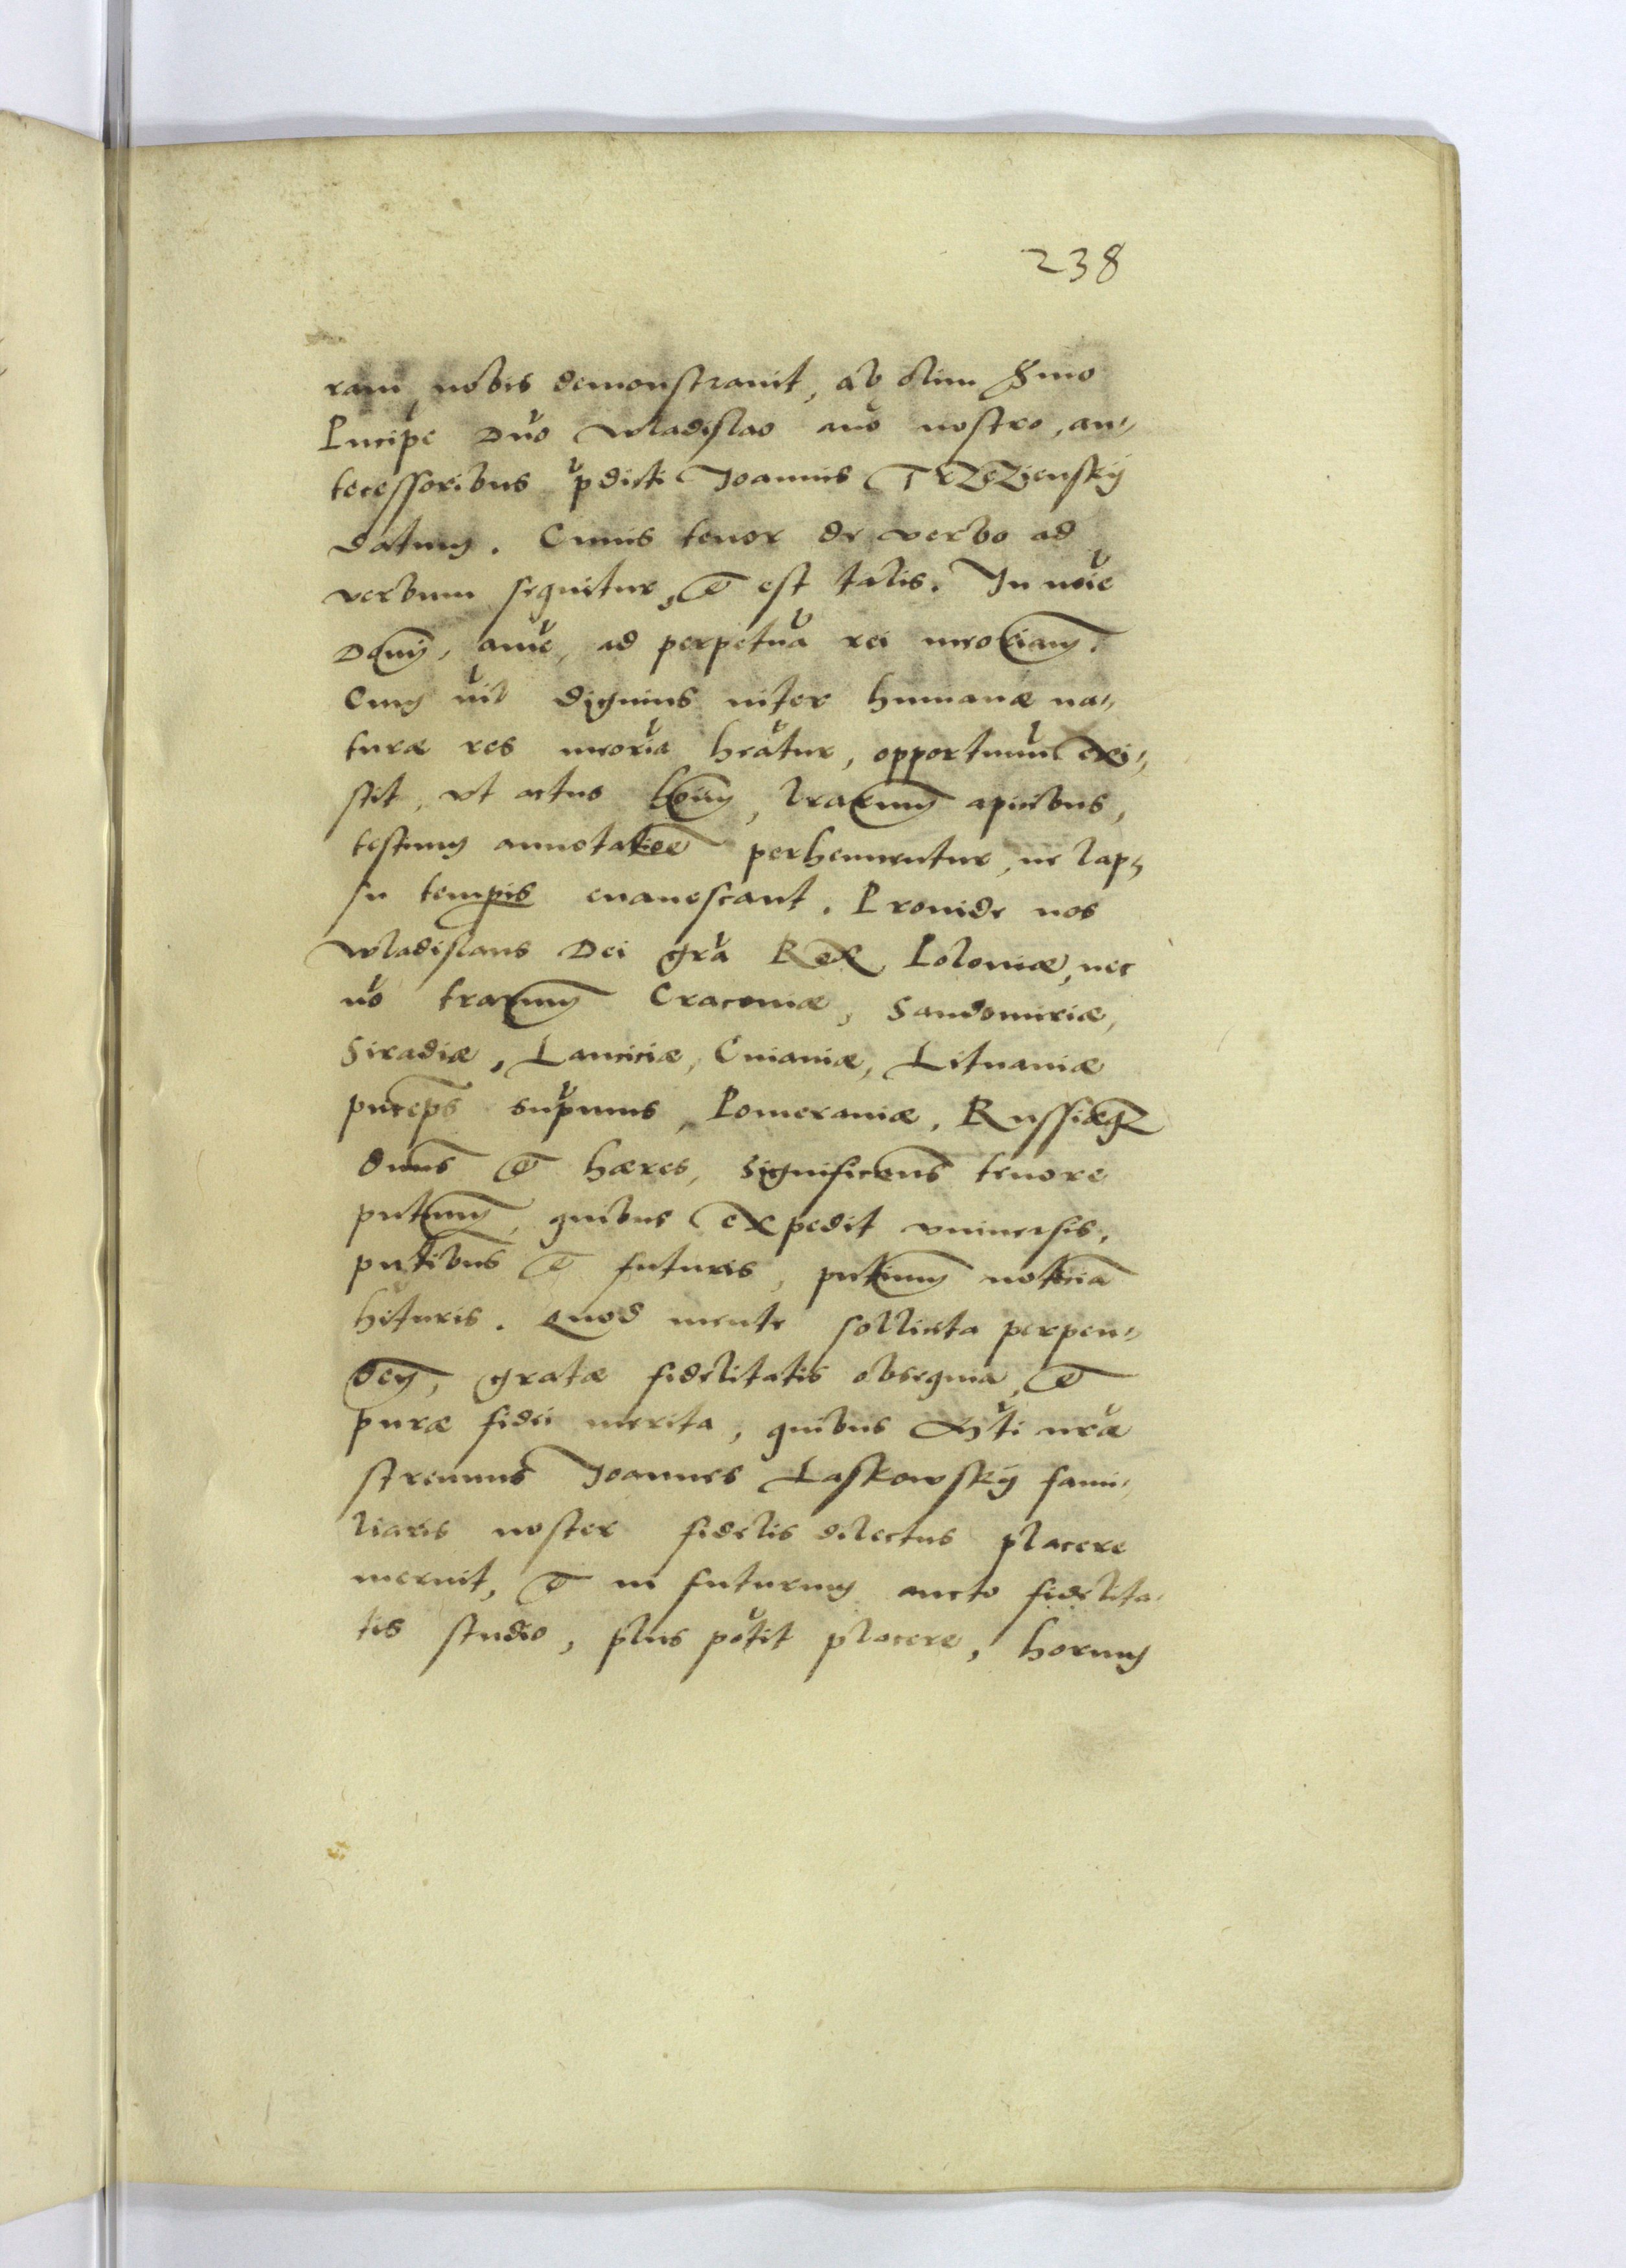 238
ram, nobis demonstrauit, ab olim Smo
Pncipe Dno Wladislao auo nostro, an-
tecessoribus pdicti Joannis Trzezienskÿ
datum. Cuius tenor de verbo ad
verbum sequitur, et est talis. In noie
Domini, ame, ad perpetua rei meoriam.
Cum nil dignius inter humanæ na-
turæ res meoria heatur, opportunum exi-
stit, vt actus hoium, lrarum apicibus,
testium annotatioe perhennentur, ne lap-
su tempis euanescant. Prouide nos
Wladislaus Dei gra Rex Poloniæ, nec
no trarum Cracouiæ, Sandomiriæ,
Siradiæ, Lanciciæ, Cuiauiæ, Lituaniæ
pnceps supmus, Pomeraniæ, Russiæq
dnus et hæres, significamus tenore
pntium, quibus expedit vniuersis,
pntibus et futuris, pntium noticia
hituris. Quod mente sollicita perpen-
den, gratæ fidelitatis obsequia, et
puræ fidei merita, quibus Mti nra
strenuus Joannes Laskowskÿ fami-
liaris noster fidelis dilectus placere
meruit, et in futurum aucto fidelita-
tis studio, plus potit placere, horum